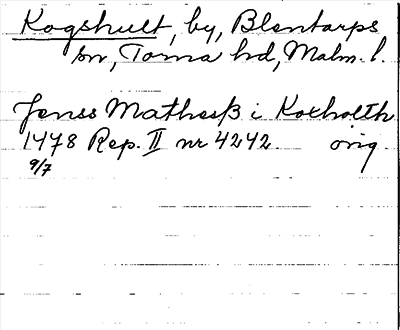 Kogshult, by, Blentarps
sn, Torna hd, Malm. l.
Jenss Mathesß i Koxholth
1478 Rep. II nr 4242. orig
9/7